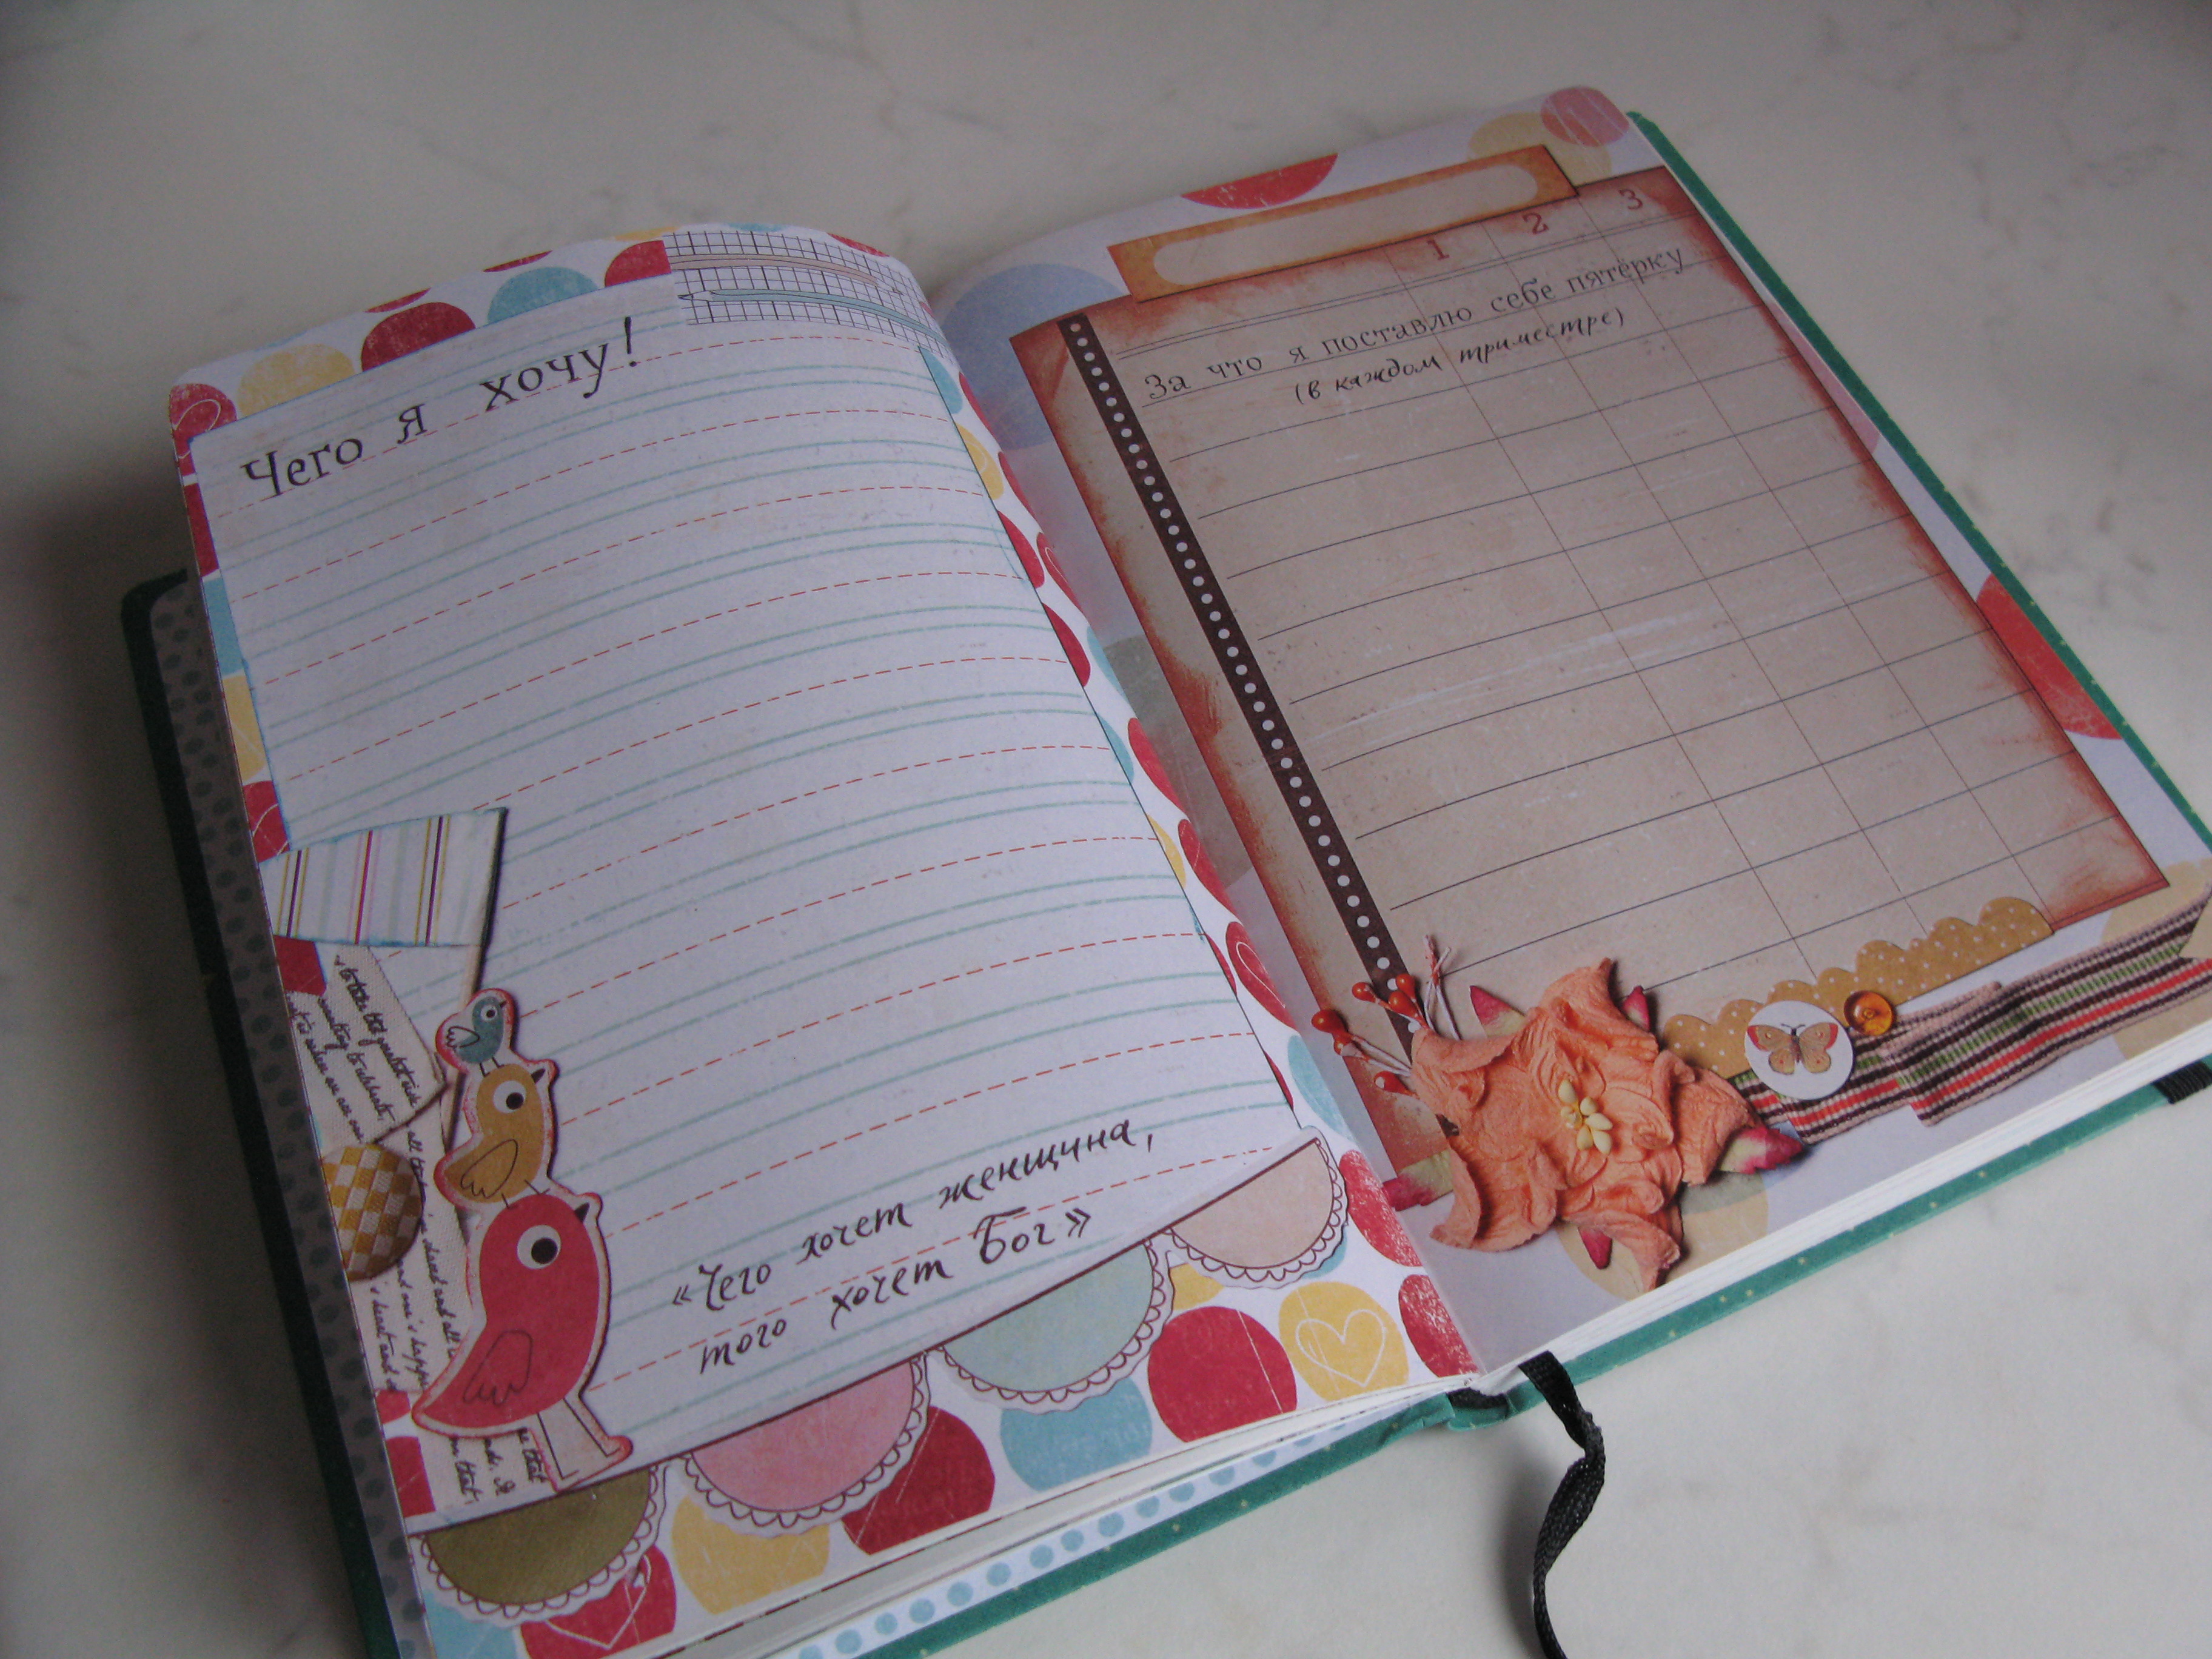 Чего я хочу!
«Чего хочет женщина,
того хочет Бог»
1 2 3
За что я поставлю себе пятёрку
(в каждом триместре)